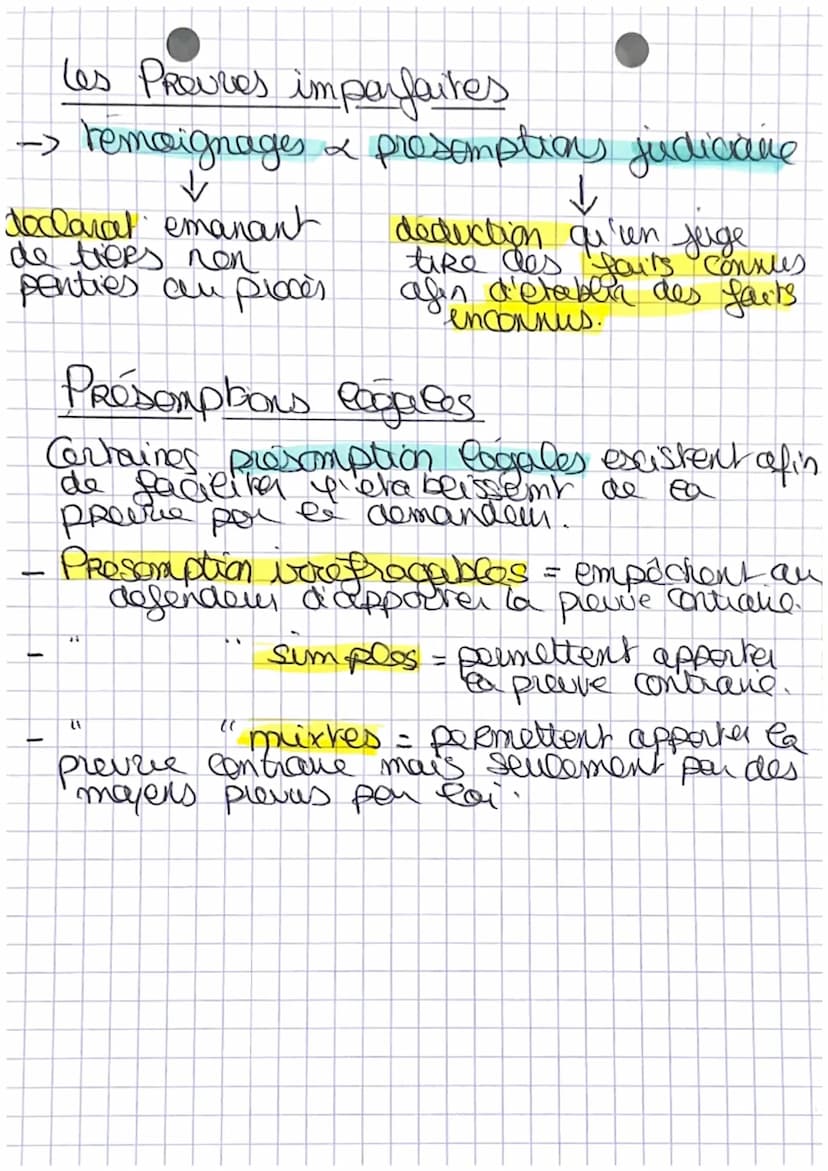 Les Preuves imparfaites
-> témoignages & présomptions judiciaire
↓ ↓
déclarat° émanant
de tiers non
parties au procès
déduction qu'un juge
tire des faits connus
afin d'établir des faits
inconnus.
Présomptions légales
Certaines présomption légales existent afin
de faciliter l'établissemt de la
preuve par le demandeur.
- Présomption irréfragables = empêchent au
défendeur d'apporter la preuve contraire.
- " " simples = permettent apporter
la preuve contraire.
- " " mixtes = permettent apporter la
preuve contraire mais seulement par des
moyens prévus par loi.